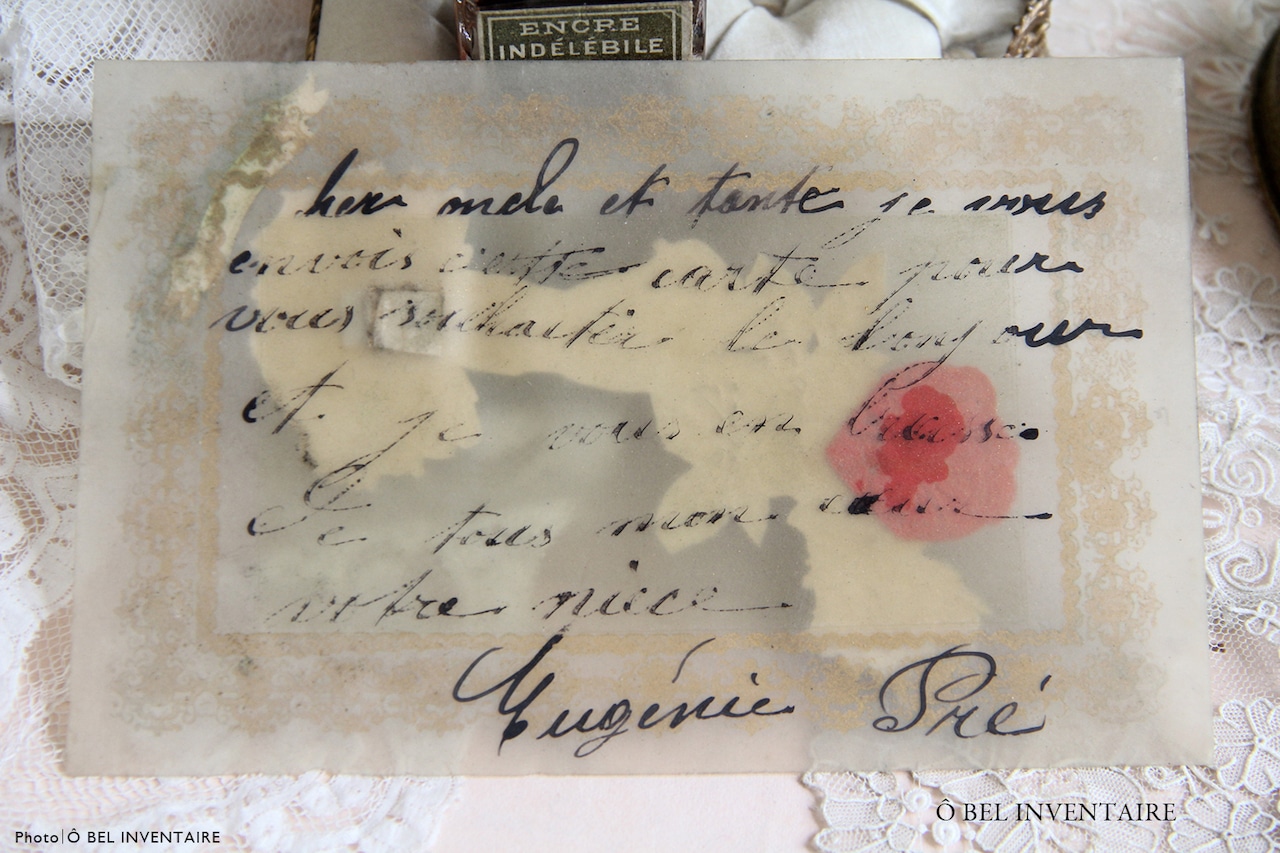 ENCRE
INDÉLÉBILE
her oncle et tante je vous
envois cette carte pour
vous souhaiter le bonjour
et je vous en brasse
De tous mon cœur
votre niece
Eugénie Pré
Ô BEL INVENTAIRE
Photo|Ô BEL INVENTAIRE